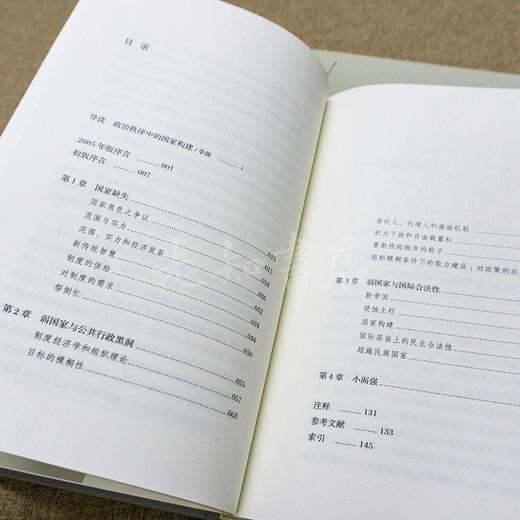 目 录
导读 政治秩序中的国家构建 / 李强 ........ i
2005 年版序言 ........ 001
初版序言 ........ 007
第 1 章 国家缺失 ........ 013
国家角色之争议 ........ 015
范围与实力 ........ 018
范围、实力和经济发展 ........ 026
新传统智慧 ........ 032
制度的供给 ........ 034
对制度的需求 ........ 044
帮倒忙 ........ 050
第 2 章 弱国家与公共行政黑洞 ........ 055
制度经济学和组织理论 ........ 057
目标的模糊性 ........ 063
委托人、代理人和激励机制
权力下放和自由裁量权
重新捡起抛弃的轮子
组织模糊条件下的能力建设：对政策的启
第 3 章 弱国家与国际合法性
新帝国
侵蚀主权
国家构建
国际层面上的民主合法性
超越民族国家
第 4 章 小而强
注释 ........ 131
参考文献 ........ 133
索引 ........ 145